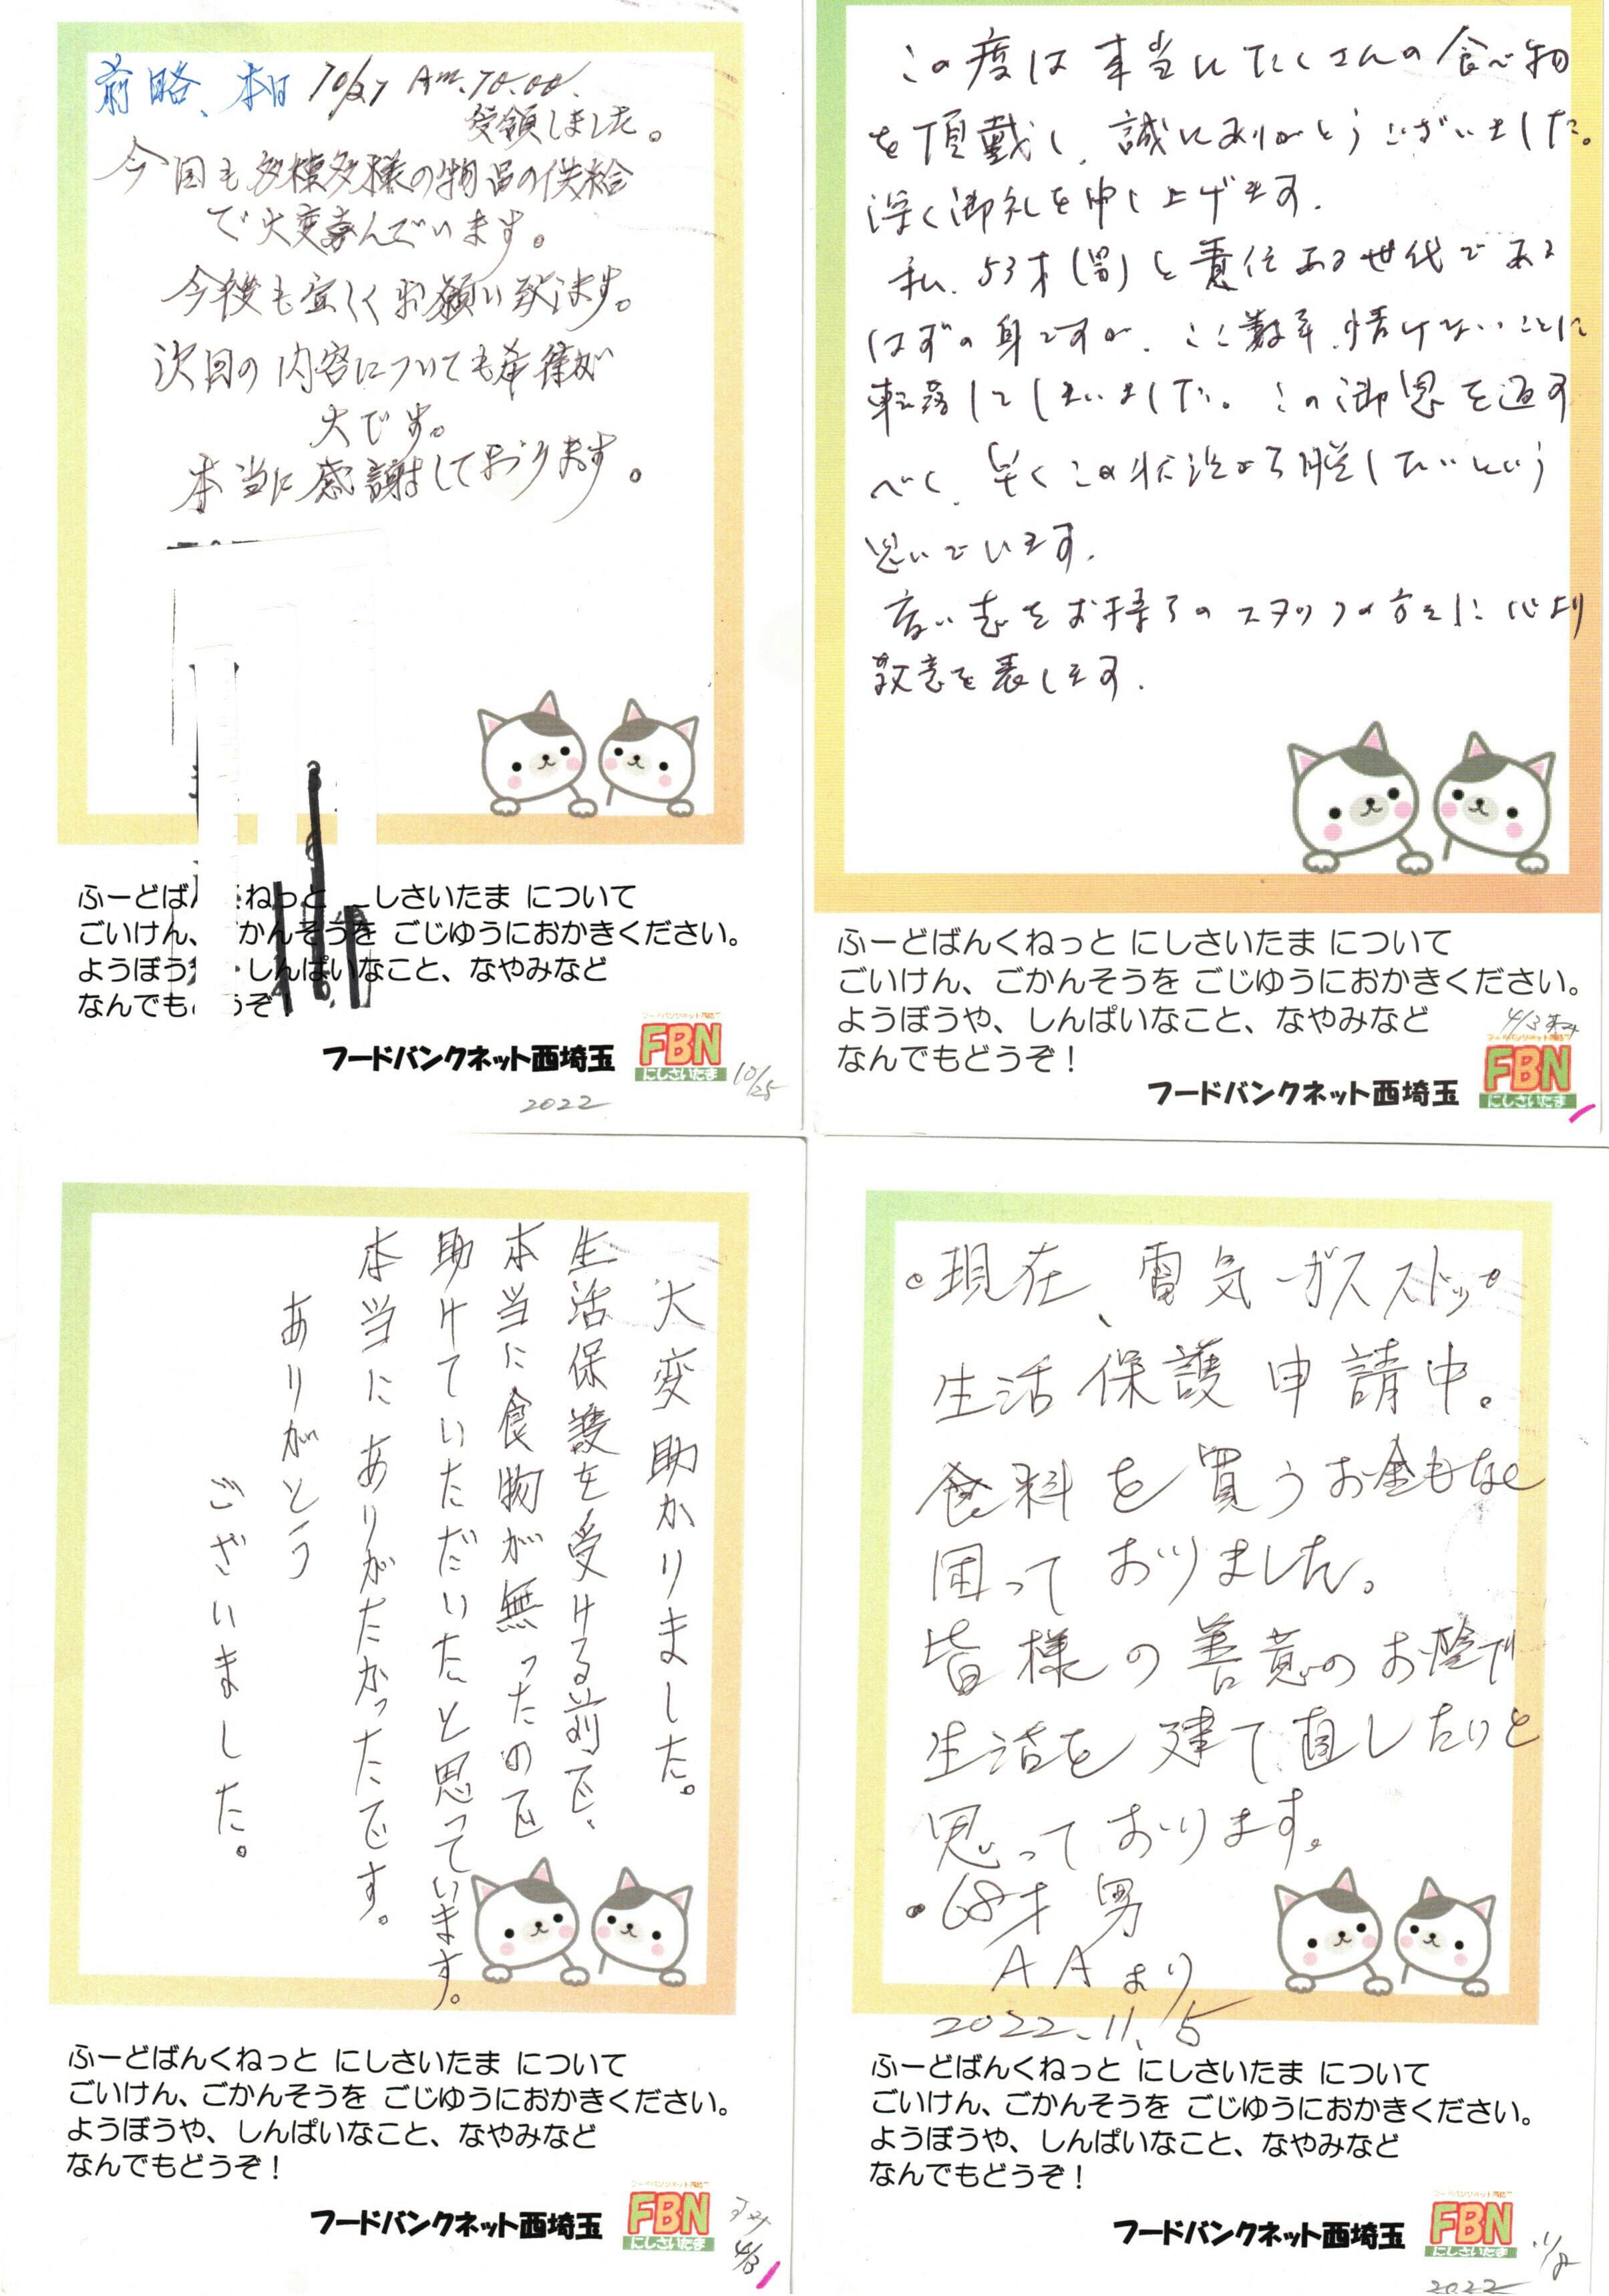 前略、本日 10/27 Am.10.00.
受領しました。
今回も多種多様の物品の供給
で大変喜んでいます。
今後も宜しくお願い致します。
次回の内容についても希待が
大です。
本当に感謝しております。
ふーどば ねっと しさいたま について
ごいけん、 かんそうを ごじゆうにおかきください。
ようぼう しんぱいなこと、なやみなど
なんでも ぞ!
フードバンクネット西埼玉
FBN
にしさいたま
10/25
2022
この度は本当にたくさんの食べ物
を頂戴し、誠にありがとうございました。
深く御礼を申し上げます。
私、53才(男)と責任ある世代である
はずの身ですが、ここ数年、情けないことに
転落してしまいました。この御恩を返す
べく、早くこの状況から脱したいという
思いでいます。
高い志をお持ちのスタッフの方々に心より
敬意を表します。
ふーどばんくねっと にしさいたま について
ごいけん、ごかんそうを ごじゆうにおかきください。
ようぼうや、しんぱいなこと、なやみなど
なんでもどうぞ!
4/3
フードバンクネット西埼玉
FBN
にしさいたま
大変助かりました。
生活保護を受ける前で、
本当に食物が無ったので
助けていただいたと思っています。
本当にありがたかったです。
ありがとう
ございました。
ふーどばんくねっと にしさいたま について
ごいけん、ごかんそうを ごじゆうにおかきください。
ようぼうや、しんぱいなこと、なやみなど
なんでもどうぞ!
フードバンクネット西埼玉
FBN
にしさいたま
4/3
・現在、電気ガスストップ
生活保護申請中。
食料を買うお金もなく
困っておりました。
皆様の善意のお陰で
生活を建て直したいと
思っております。
・68才 男
AAより
2022.11.5
ふーどばんくねっと にしさいたま について
ごいけん、ごかんそうを ごじゆうにおかきください。
ようぼうや、しんぱいなこと、なやみなど
なんでもどうぞ!
フードバンクネット西埼玉
FBN
にしさいたま
2022